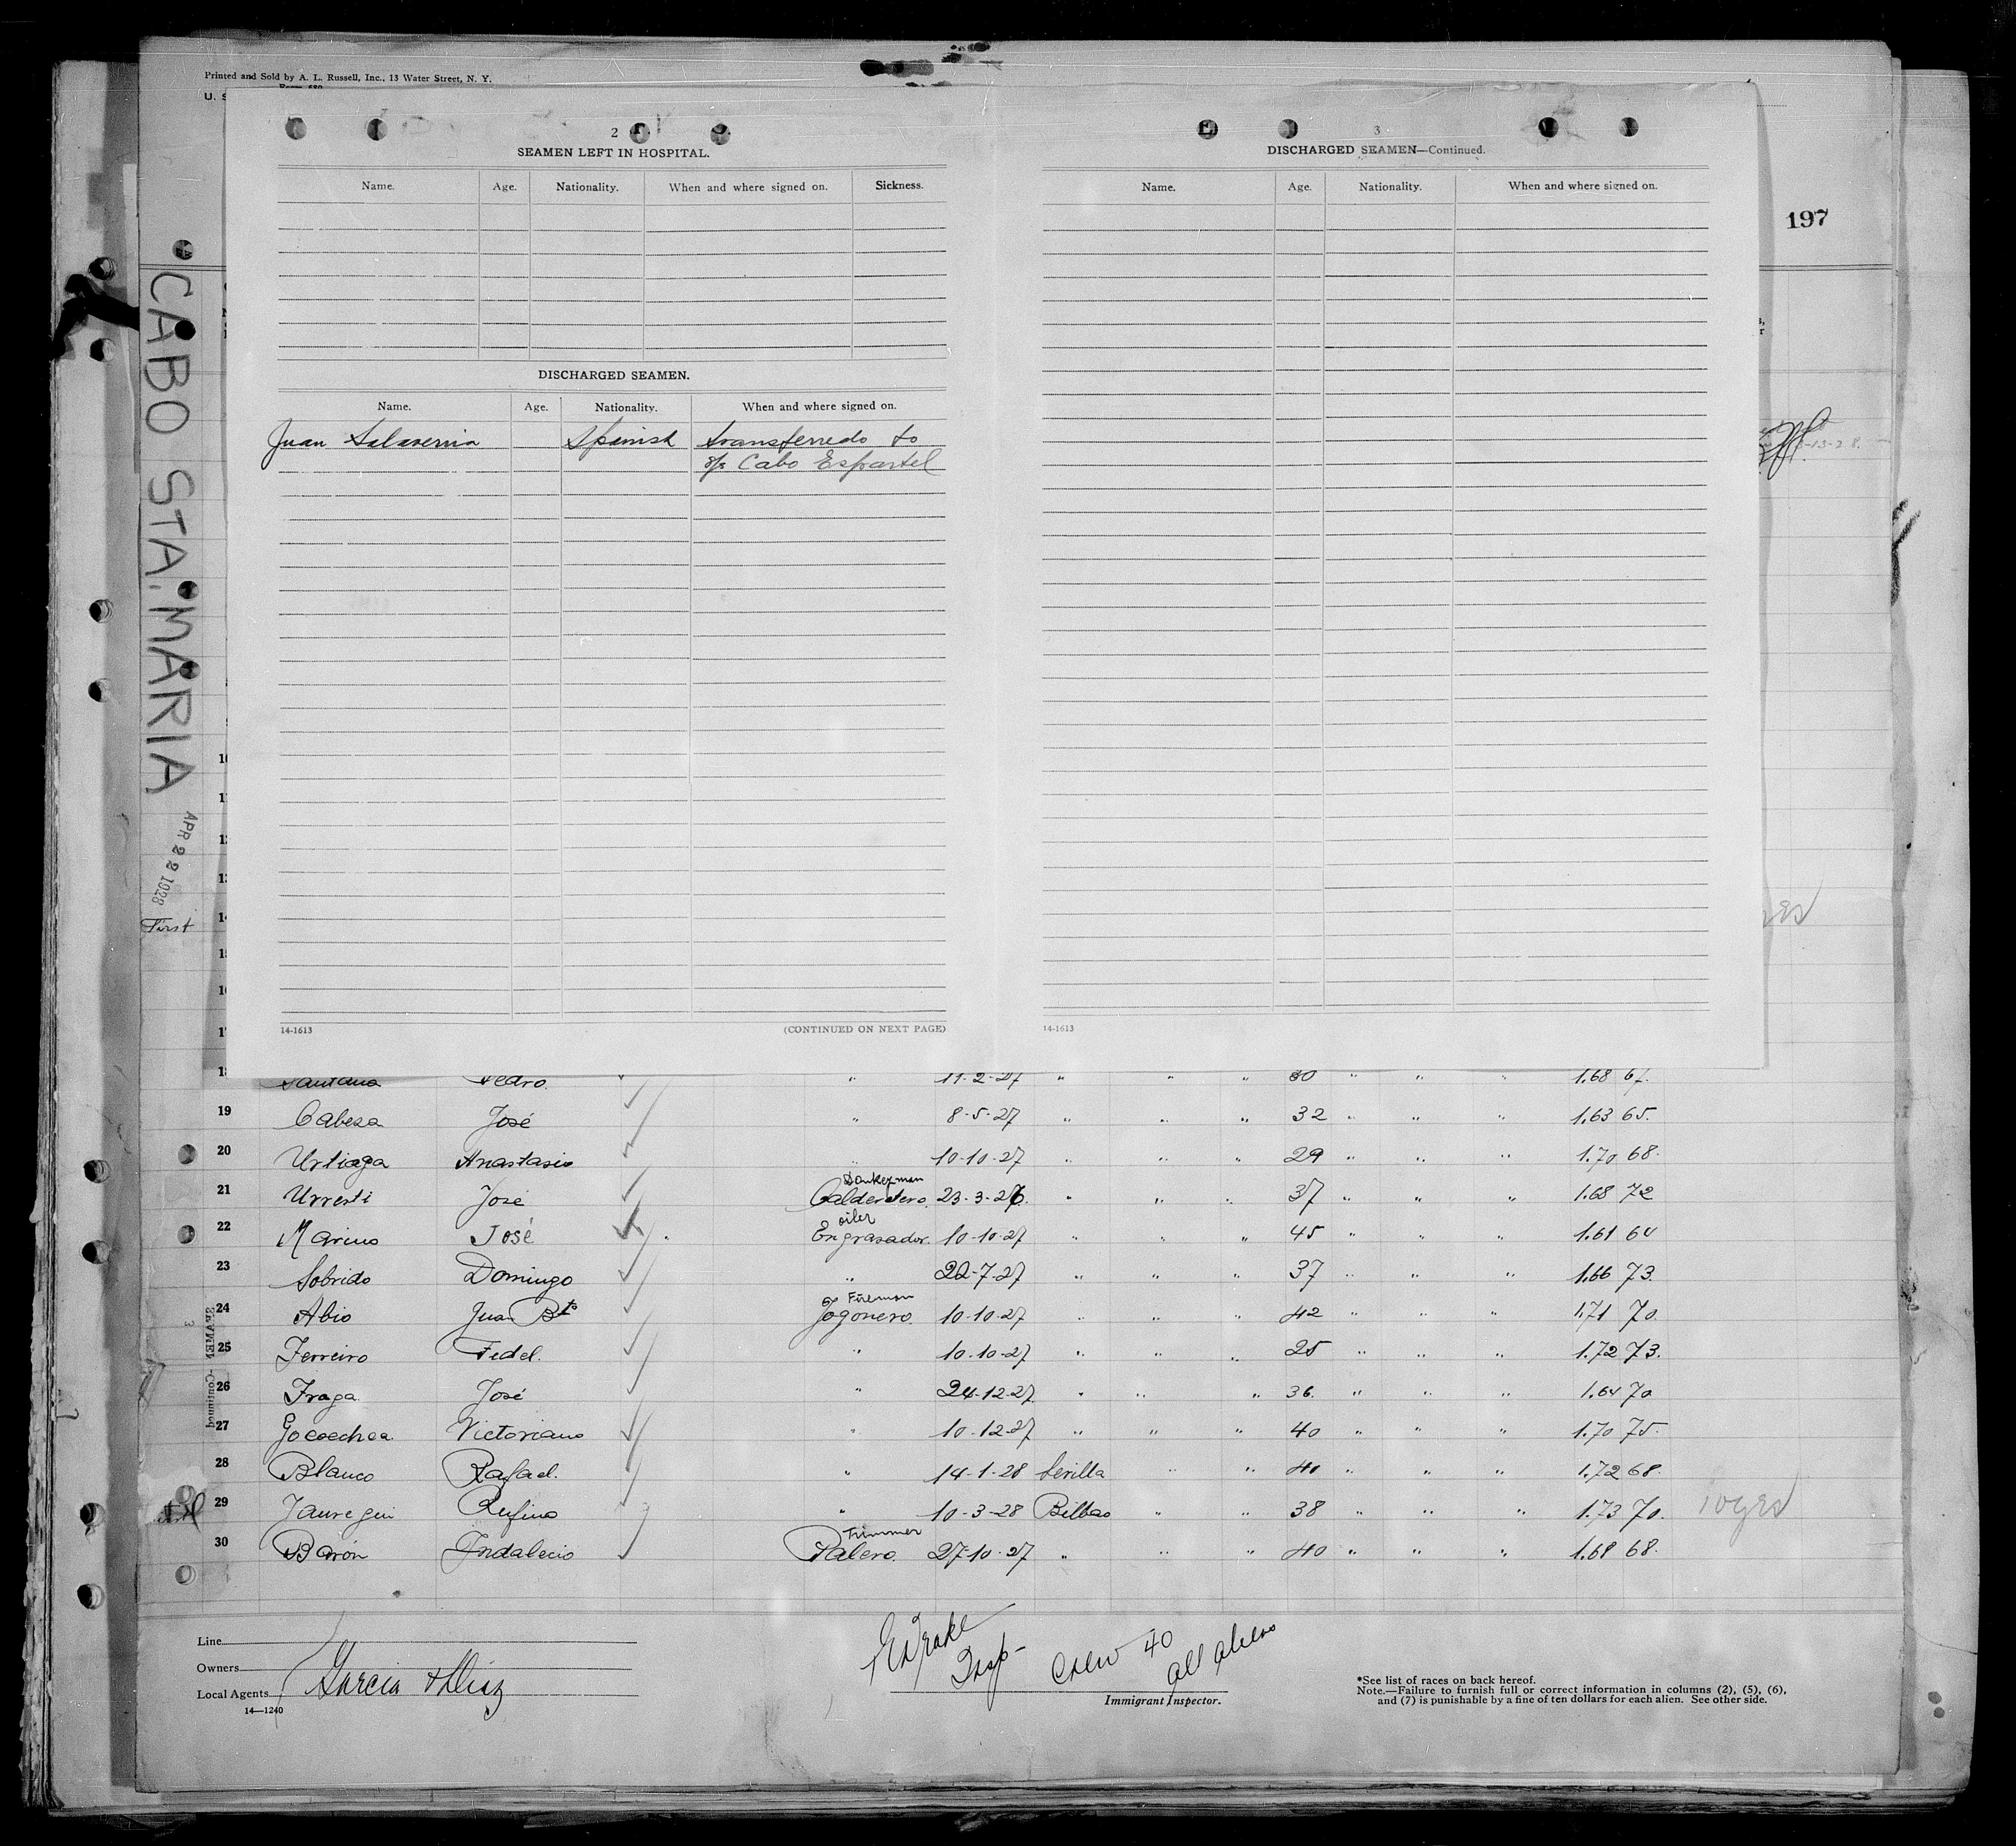 Printed and Sold by A. L. Russell, Inc., 13 Water Street, N. Y.
U. S
197
CABO STA. MARIA
APR 22 1928
First
2
SEAMEN LEFT IN HOSPITAL.
Name. Age. Nationality. When and where signed on. Sickness.
DISCHARGED SEAMEN.
Name. Age. Nationality. When and where signed on.
Juan Salaverria Spanish transferredo to
s/s Cabo Espartel
14-1613 (CONTINUED ON NEXT PAGE)
3
DISCHARGED SEAMEN—Continued.
Name. Age. Nationality. When and where signed on.
14-1613
-13-28.
10
11
12
13
14
18 Santana Pedro. " 11-2-27 " " " 30 " " " 1.68 67.
19 Cabeza José " 8-5-27 " " " 32 " " " 1.63 65.
20 Urtiaga Anastasio " 10-10-27 " " " 29 " " " 1.70 68.
Donkeyman
21 Urresti José Calderetero. 23-3-26. " " " 37 " " " 1.68 72
oiler
22 Marino José " Engrasador. 10-10-27 " " " 45 " " " 1.61 64
23 Sobrido Domingo " 22-7-27 " " " 37 " " " 1.66 73.
Fireman
24 Abio Juan Bta Fogonero. 10-10-27 " " " 42 " " " 1.71 70.
25 Ferreiro Fidel. " 10-10-27 " " " 25 " " " 1.72 73.
26 Fraga José " 24-12-27. " " " 36. " " " 1.64 70
27 Gocoechea Victoriano " 10-12-27 " " " 40 " " " 1.70 75.
28 Blanco Rafael. " 14-1-28 Sevilla " " 40 " " " 1.72 68.
29 Jauregui Rufino " 10-3-28 Bilbao " " 38 " " " 1.73 70. 10yrs
Trimmer
30 Barón Indalecio Palero. 27-10-27 " " " 40 " " " 1.69 68.
SEAMEN—Continued
3
Line
Owners
Local Agents Garcia & Diaz
14—1240
E Drake
Insp- Crew 40
all aliens
Immigrant Inspector.
*See list of races on back hereof.
Note.—Failure to furnish full or correct information in columns (2), (5), (6),
and (7) is punishable by a fine of ten dollars for each alien. See other side.